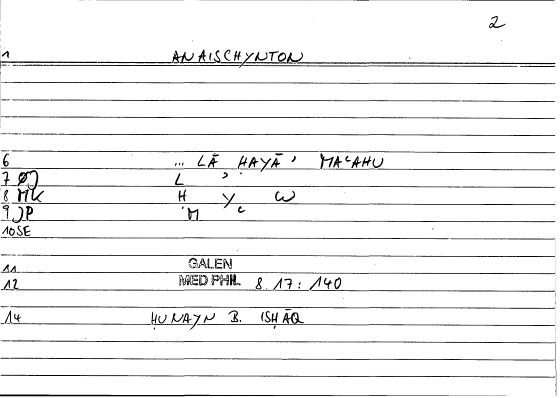 2
1 ANAISCHYNTON
6 ... LĀ ḤAYĀʾ MAʿAHU
7 ØJ L ʾ
8 MK Ḥ Y W
9 JP M ʿ
10 SE
11 GALEN
12 MED PHIL 8.17: 140
14 ḤUNAYN B. ISḤĀQ